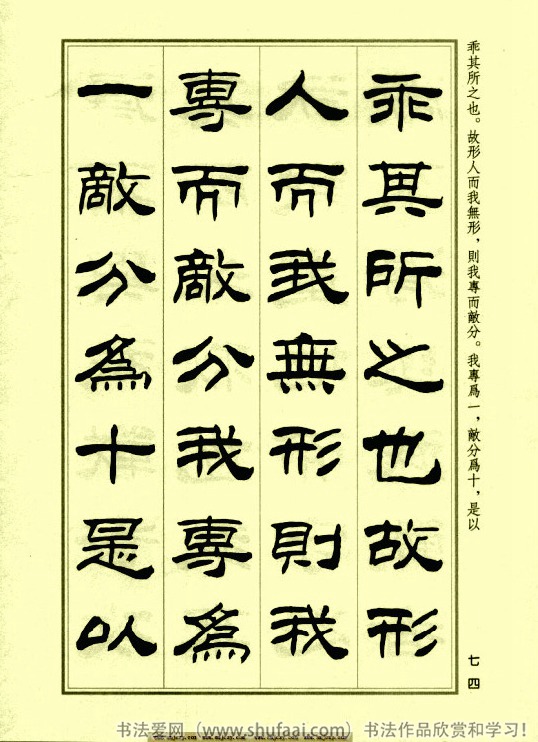 乖其所之也。故形人而我無形，則我專而敵分。我專爲一，敵分爲十，是以
乖其所之也故形
人而我無形則我
專而敵分我專爲
一敵分爲十是以
七四
书法爱网（www.shufaai.com）书法作品欣赏和学习！